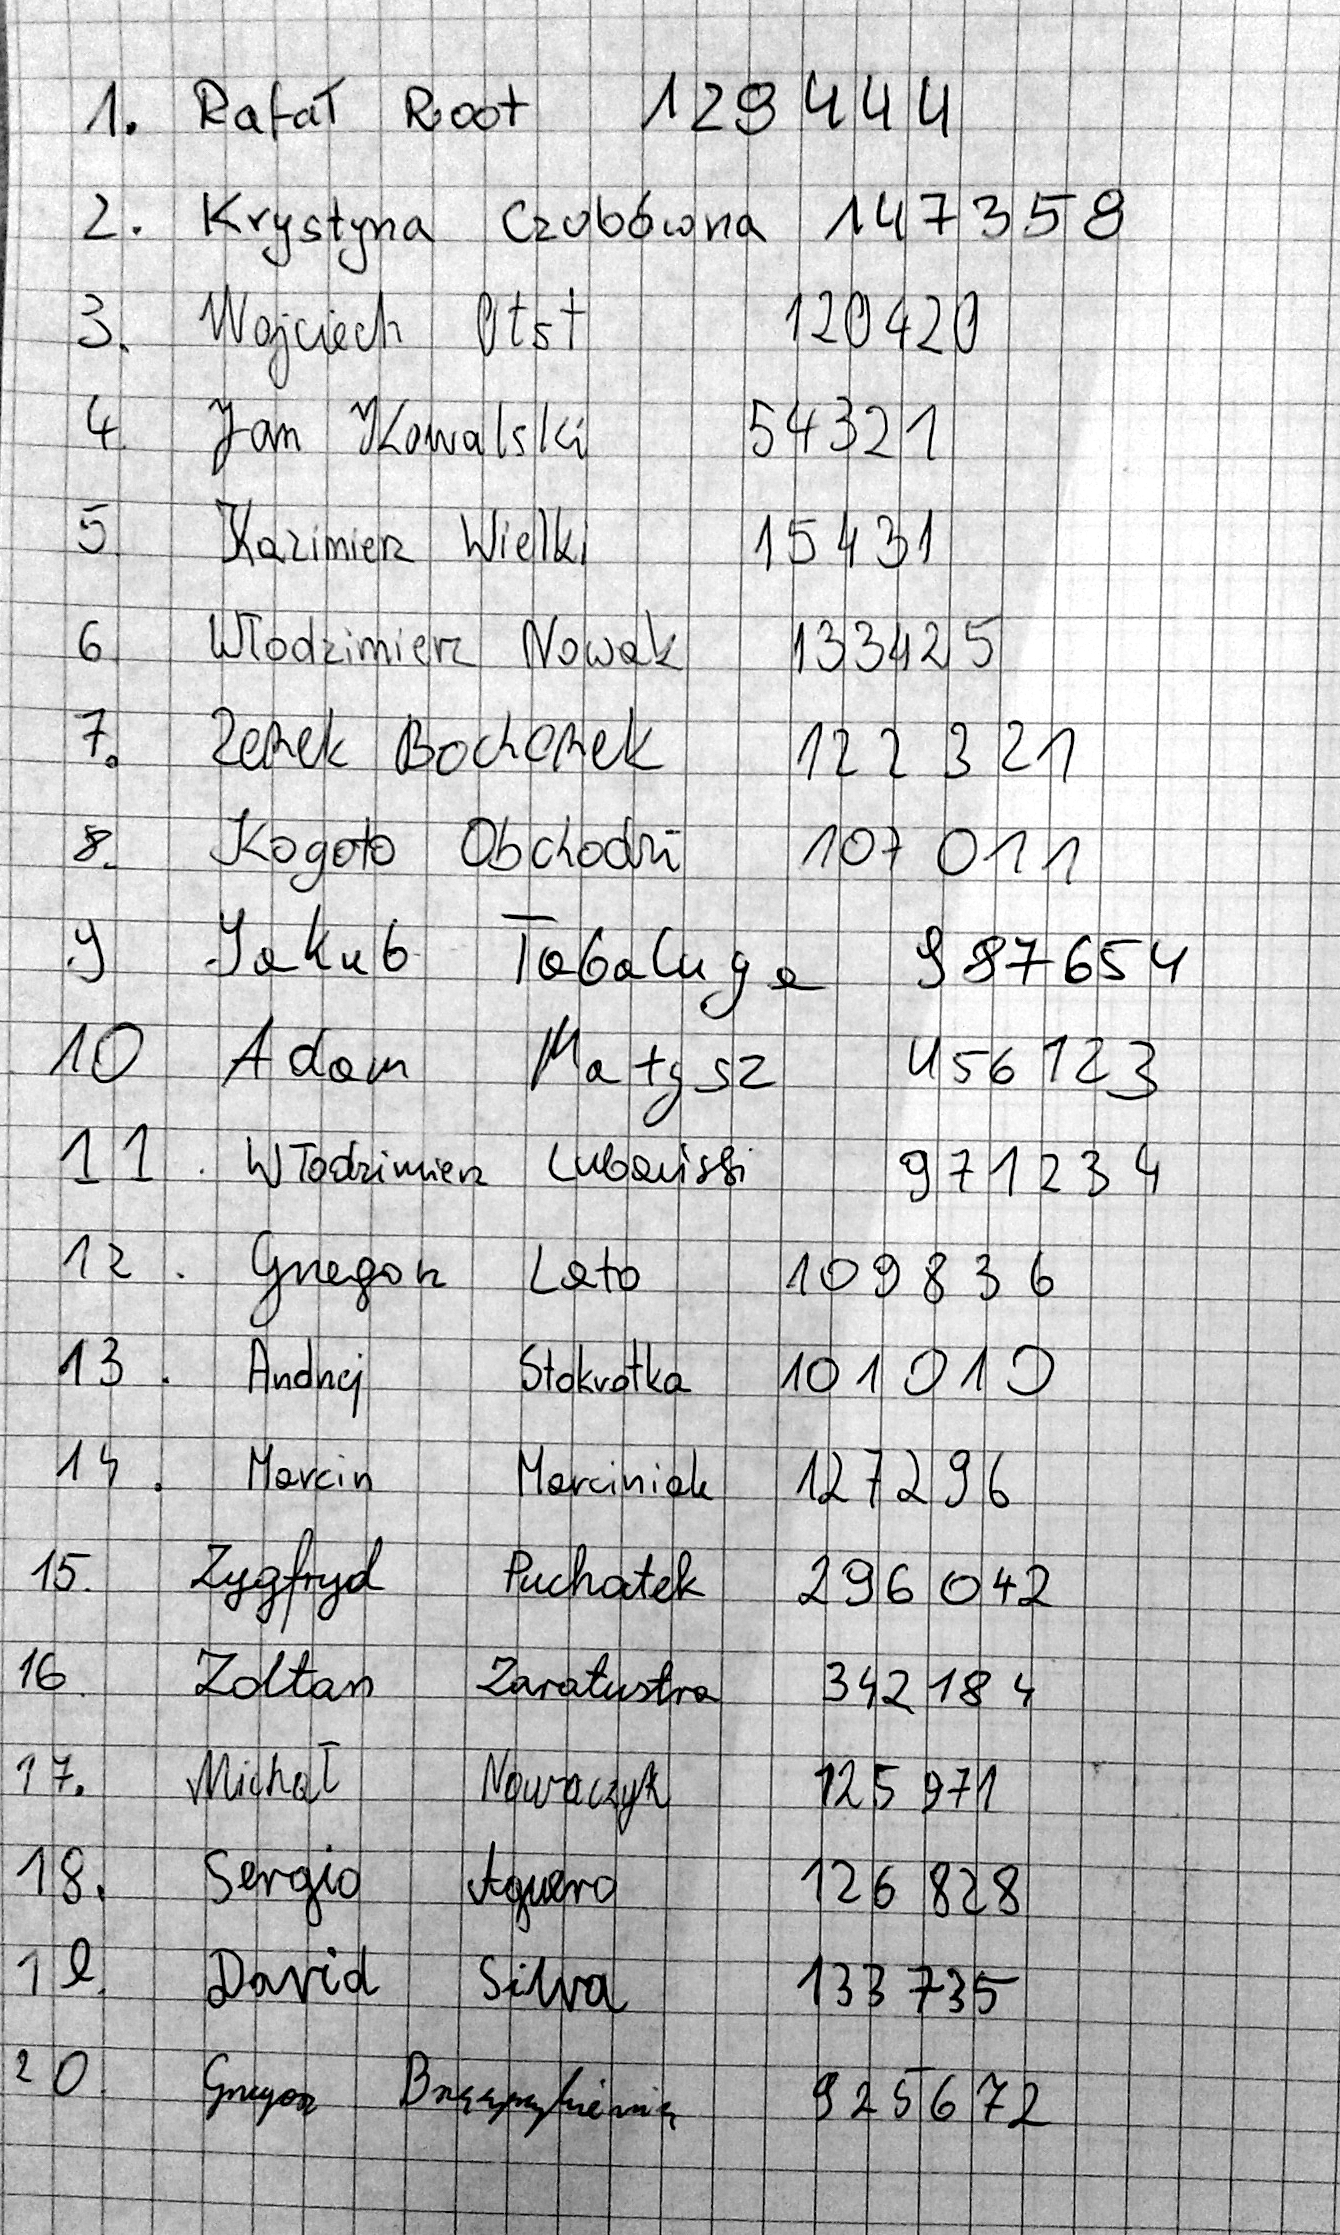 1. Rafał Root 129444
2. Krystyna Czubówna 147359
3. Wojciech Otst 120420
4. Jan Kowalski 54321
5. Kazimierz Wielki 15431
6. Włodzimierz Nowak 133425
7. Zenek Bochenek 122321
8. Kogoto Obchodzi 107011
9 Jakub Tabaluga 987654
10 Adam Małysz 456123
11. Włodzimierz 971234
12. Grzegorz Lato 109836
13. Andrzej Stokrotka 101010
14. Marcin Marciniak 127296
15. Zygfryd Puchatek 296042
16. Zoltan Zaratustra 342184
17. Michał Nowaczyk 125971
18. Sergio Aguero 126828
19. David Silva 133735
20. Grzegorz 925672